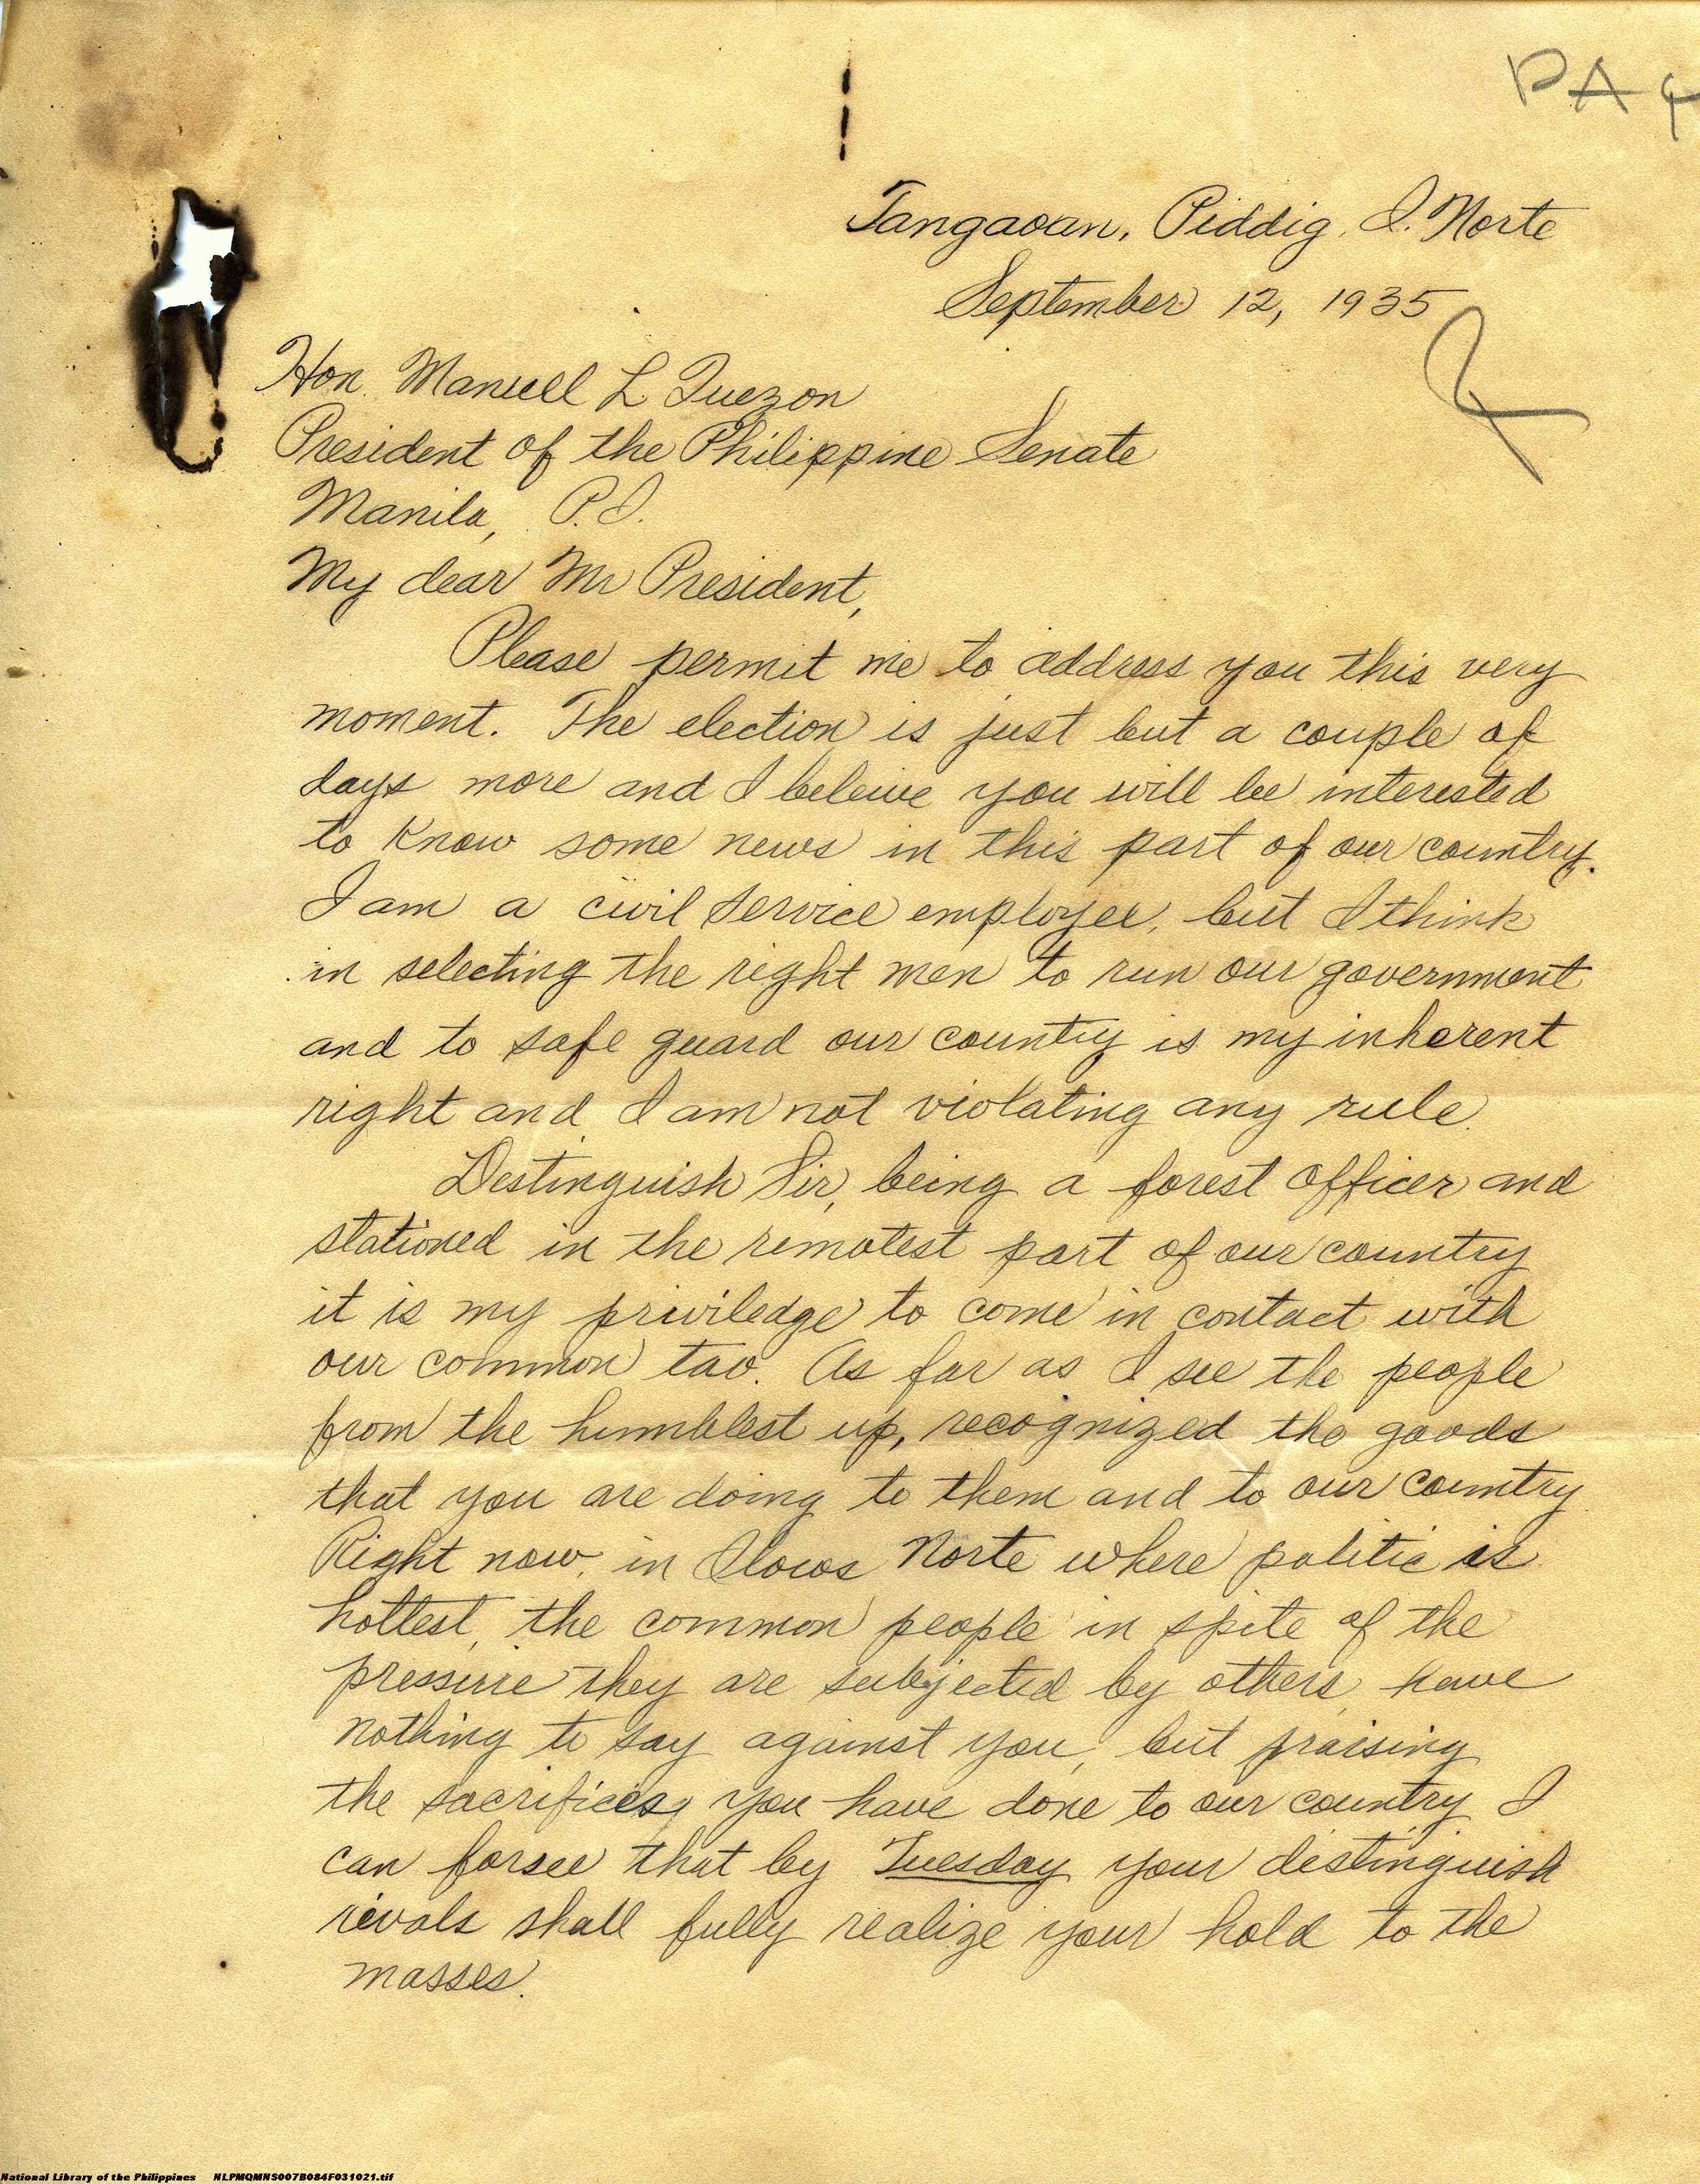 PAG
Tangaoan, Piddig, I. Norte
September 12, 1935
Hon. Manuell L Quezon
President of the Philippine Senate
Manila, P.I.
My dear Mr President,
Please permit me to address you this very
moment. The election is just but a couple of
days more and I beleive you will be interested
to know some news in this part of our country.
I am a civil service employee, but I think
in selecting the right men to run our government
and to safe guard our country is my inherent
right and I am not violating any rule.
Destinguish Sir, being a forest officer and
stationed in the remotest part of our country
it is my priviledge to come in contact with
our common tao. As far as I see the people
from the humblest up, recognized the goods
that you are doing to them and to our country
Right now, in Ilocos Norte where politic is
hottest, the common people in spite of the
pressure they are subjected by others, have
nothing to say against you, but praising
the sacrifices, you have done to our country. I
can forsee that by Tuesday your distinguish
rivals shall fully realize your hold to the
masses.
National Library of the Philippines NLPMQMNS007B084F031021.tif